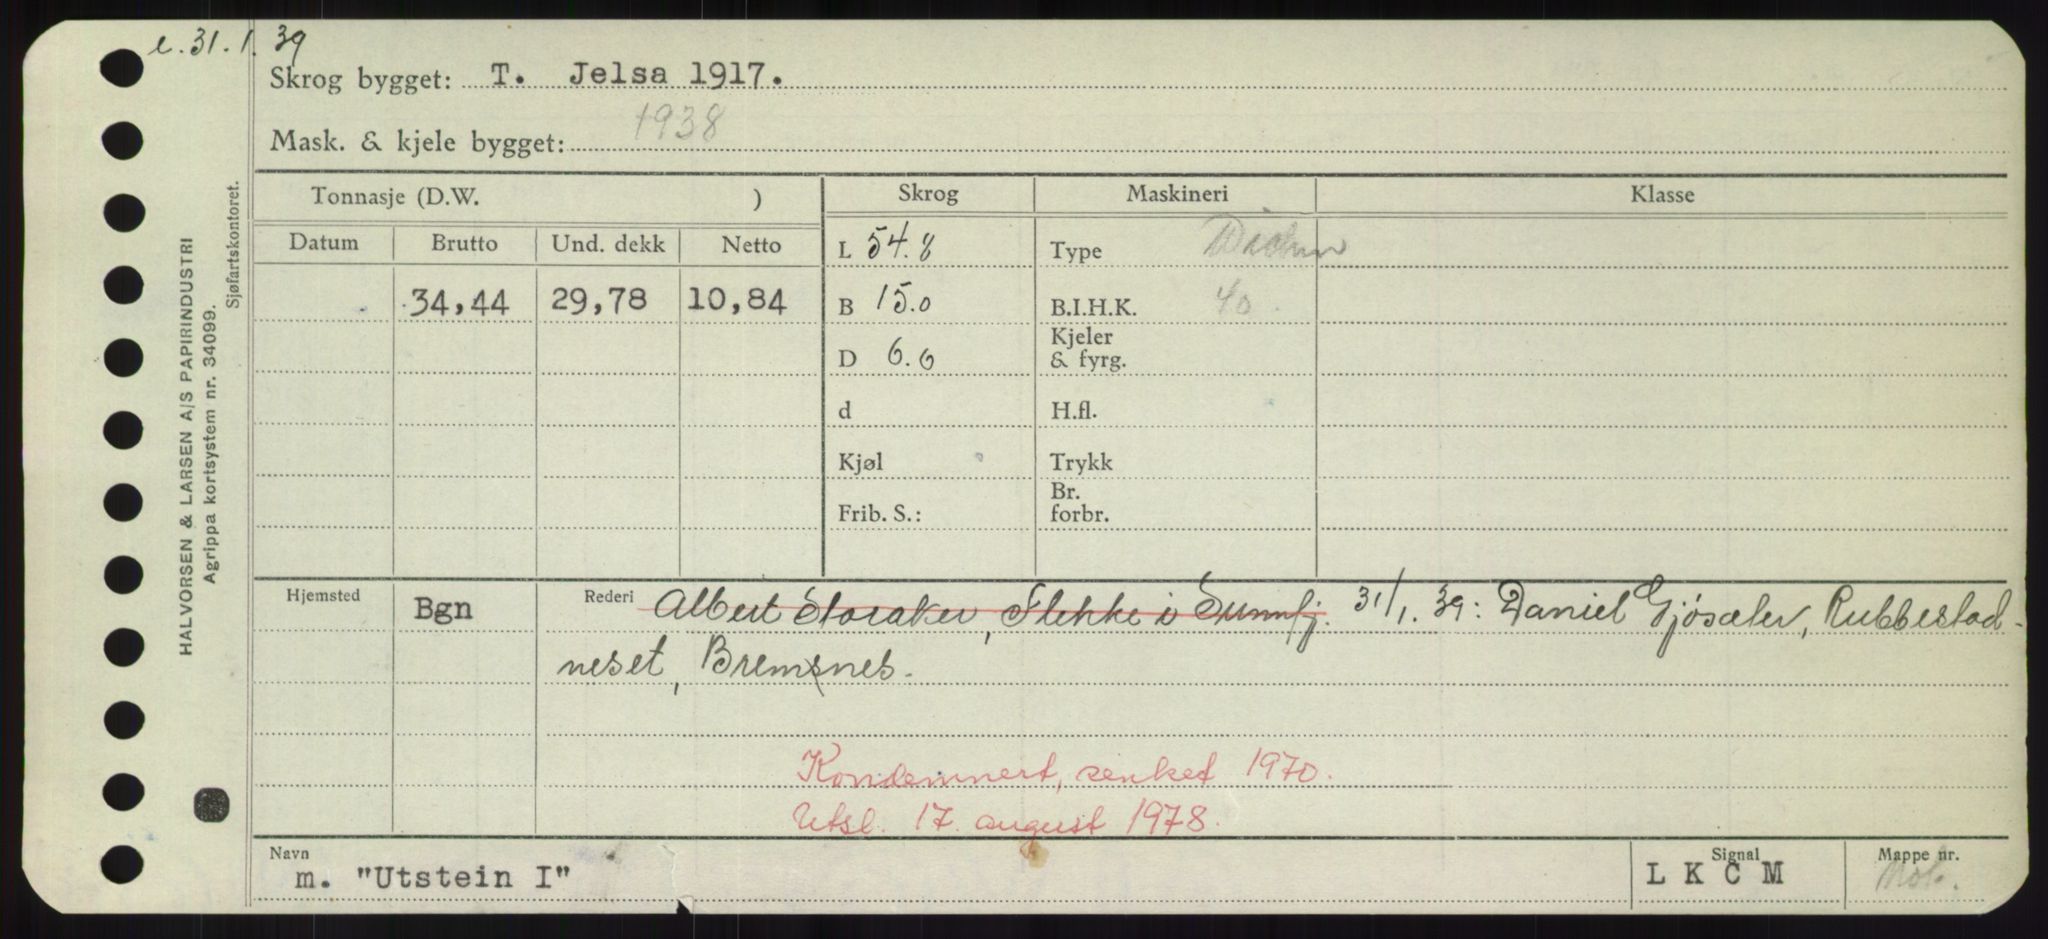 e. 31.1.39
Skrog bygget: T. Jelsa 1917.
Mask. & kjele bygget: 1938
Tonnasje (D.W. ) Skrog Maskineri Klasse
Datum Brutto Und. dekk Netto
L 54.8 Type
34,44 29,78 10,84 B 15.0 B.I.H.K. 40
D 6.6 Kjeler & fyrg.
d H.fl.
Kjøl Trykk
Frib. S.: Br. forbr.
Hjemsted Bgn Rederi Albert Storaker, Flekke i Sunnfj. 31/1.39: Daniel Gjøsæter, Rubbestad-
neset, Bremsnes.
Kondemnert, senket 1970.
Utsl. 17. august 1978.
Navn m. "Utstein I" Signal LKCM Mappe nr.
HALVORSEN & LARSEN A/S PAPIRINDUSTRI
Agrippa kortsystem nr. 34099.
Sjøfartskontoret.